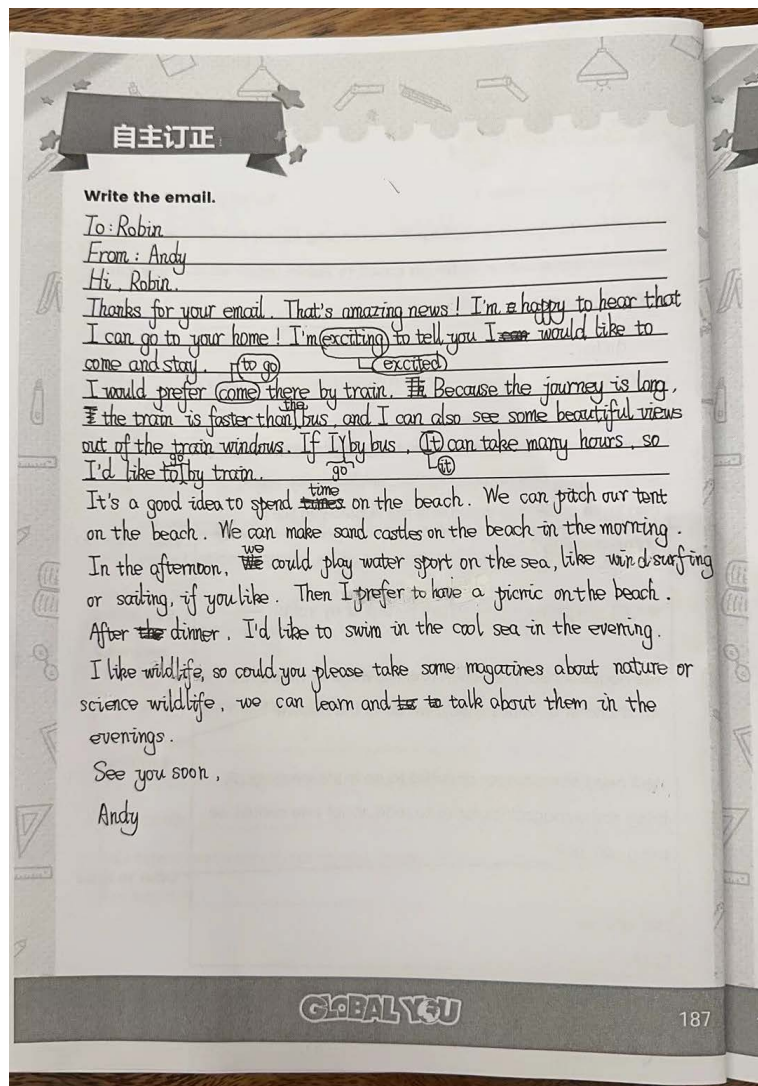 自主订正
Write the email.
To: Robin
From: Andy
Hi, Robin.
Thanks for your email. That's amazing news! I'm happy to hear that
I can go to your home! I'm exciting to tell you I would like to
come and stay. to go excited
I would prefer come there by train. Because the journey is long,
the train is faster than the bus, and I can also see some beautiful views
out of the train windows. If I go by bus, It can take many hours, so
I'd like to go by train. it
It's a good idea to spend time on the beach. We can pitch our tent
on the beach. We can make sand castles on the beach in the morning.
In the afternoon, we could play water sport on the sea, like windsurfing
or sailing, if you like. Then I prefer to have a picnic on the beach.
After dinner, I'd like to swim in the cool sea in the evening.
I like wildlife, so could you please take some magazines about nature or
science wildlife, we can learn and talk about them in the
evenings.
See you soon,
Andy
GLOBAL YOU
187